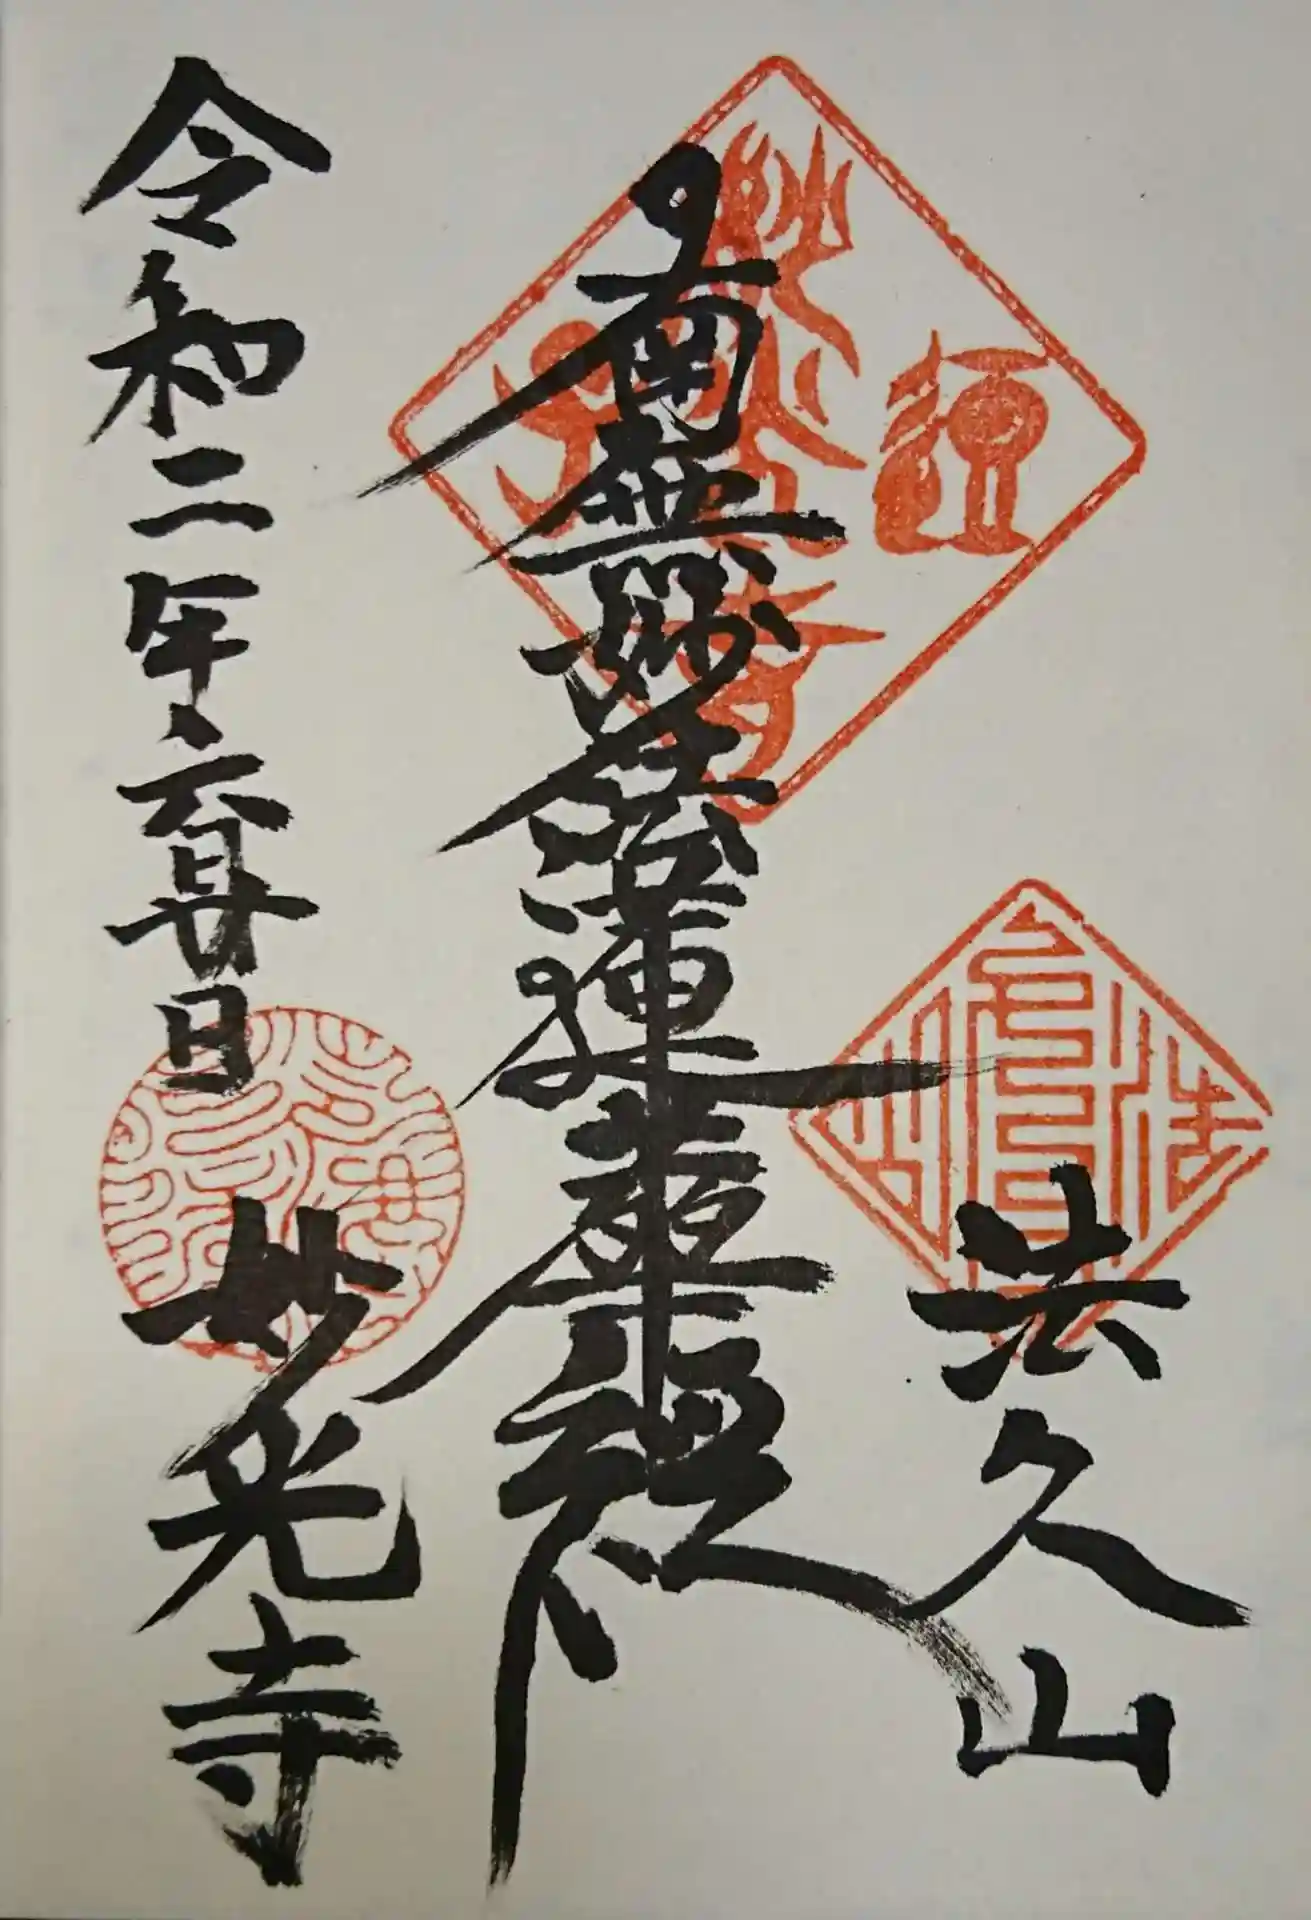 共久山
南無妙法蓮華経
令和二年六月廿日
妙光寺